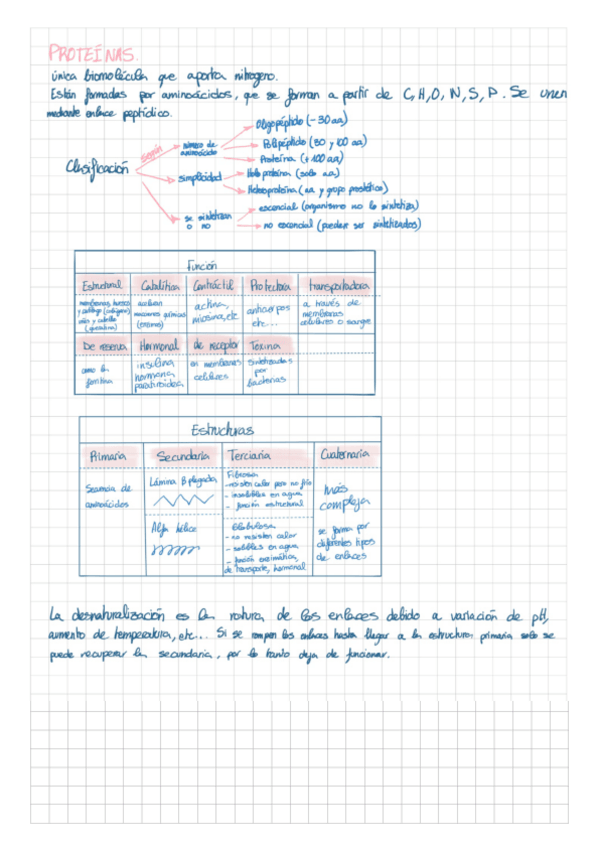 PROTEÍNAS.
única biomolécula que aporta nitrogeno.
Están formadas por aminoácidos, que se forman a partir de C, H, O, N, S, P. Se unen
mediante enlace peptídico.
Clasificación
según
número de
aminoácido
Oligopéptido (- 30 aa)
Polipéptido (30 y 100 aa)
Proteína (+ 100 aa)
simplicidad
Holoproteína (solo aa)
Heteroproteína (aa y grupo prostético)
se sintetizan
o no
esencial (organismo no lo sintetiza)
no esencial (pueden ser sintetizados)
Función
Estructural
Catalítica
Contráctil
Protectora
transportadora
membranas, huesos
y cartílago (colágeno)
uñas y cabello
(queratina)
activan
reacciones químicas
(enzimas)
actina,
miosina, etc
anticuerpos
etc...
a través de
membranas
celulares o sangre
De reserva
Hormonal
de receptor
Toxina
como la
ferritina
insulina
hormona
paratiroidea
en membranes
celulares
sintetizadas
por
bacterias
Estructuras
Primaria
Secundaria
Terciaria
Cuaternaria
Secuencia de
aminoácidos
Lámina B plegada
Alfa hélice
Fibrosa
- resisten calor pero no frío
- insolubles en agua
- función estructural
Globulosa
- no resisten calor
- solubles en agua
- función enzimática,
de transporte, hormonal
más
compleja
se forma por
diferentes tipos
de enlaces
La desnaturalización es la rotura de los enlaces debido a variación de pH,
aumento de temperatura, etc... Si se rompen los enlaces hasta llegar a la estructura primaria solo se
puede recuperar la secundaria, por lo tanto deja de funcionar.